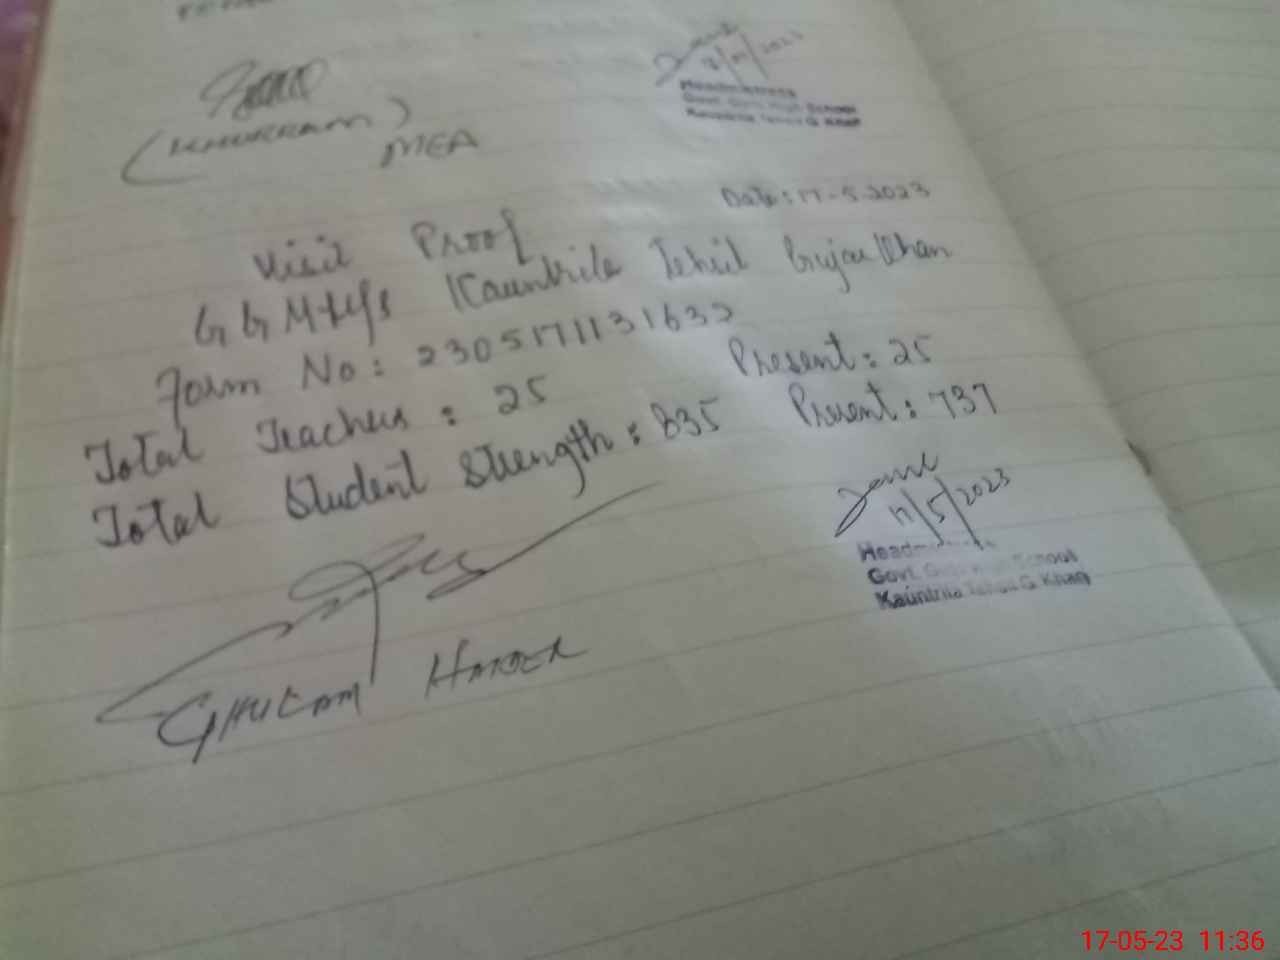 (KHURRAM)
MEA
Headmistress
Govt. Girls High School
Kauntrila Tehsil G. Khan
Date: 17-5-2023
Visit Proof
Kauntrila Tehsil Gujar Khan
Form No: 2305171131632
Total Teachers: 25 Present: 25
Total Student Strength: 835 Present: 737
17/5/2023
Govt. School
Kauntrila Tehsil G Khan
GHULAM HAIDER
17-05-23 11:36